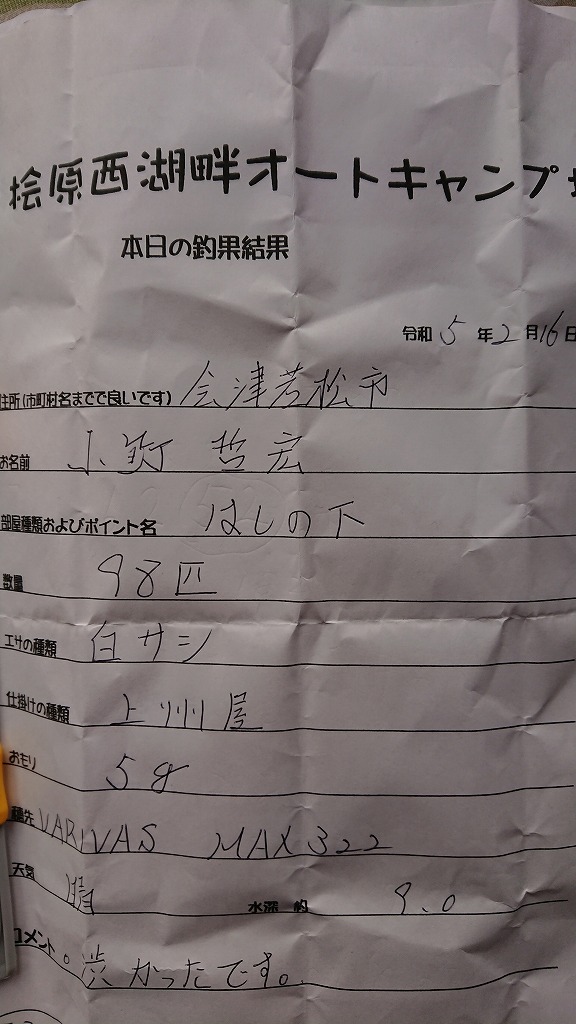 桧原西湖畔オートキャンプ
本日の釣果結果
令和 5 年 2 月 16 日
住所(市町村名までで良いです) 会津若松市
お名前 小 哲宏
部屋種類およびポイント名 はしの下
数量 98匹
エサの種類 白サシ
仕掛けの種類 上州屋
おもり 5g
穂先 VARIVAS MAX322
天気 晴 水深 約 9.0
コメント 。渋かったです。